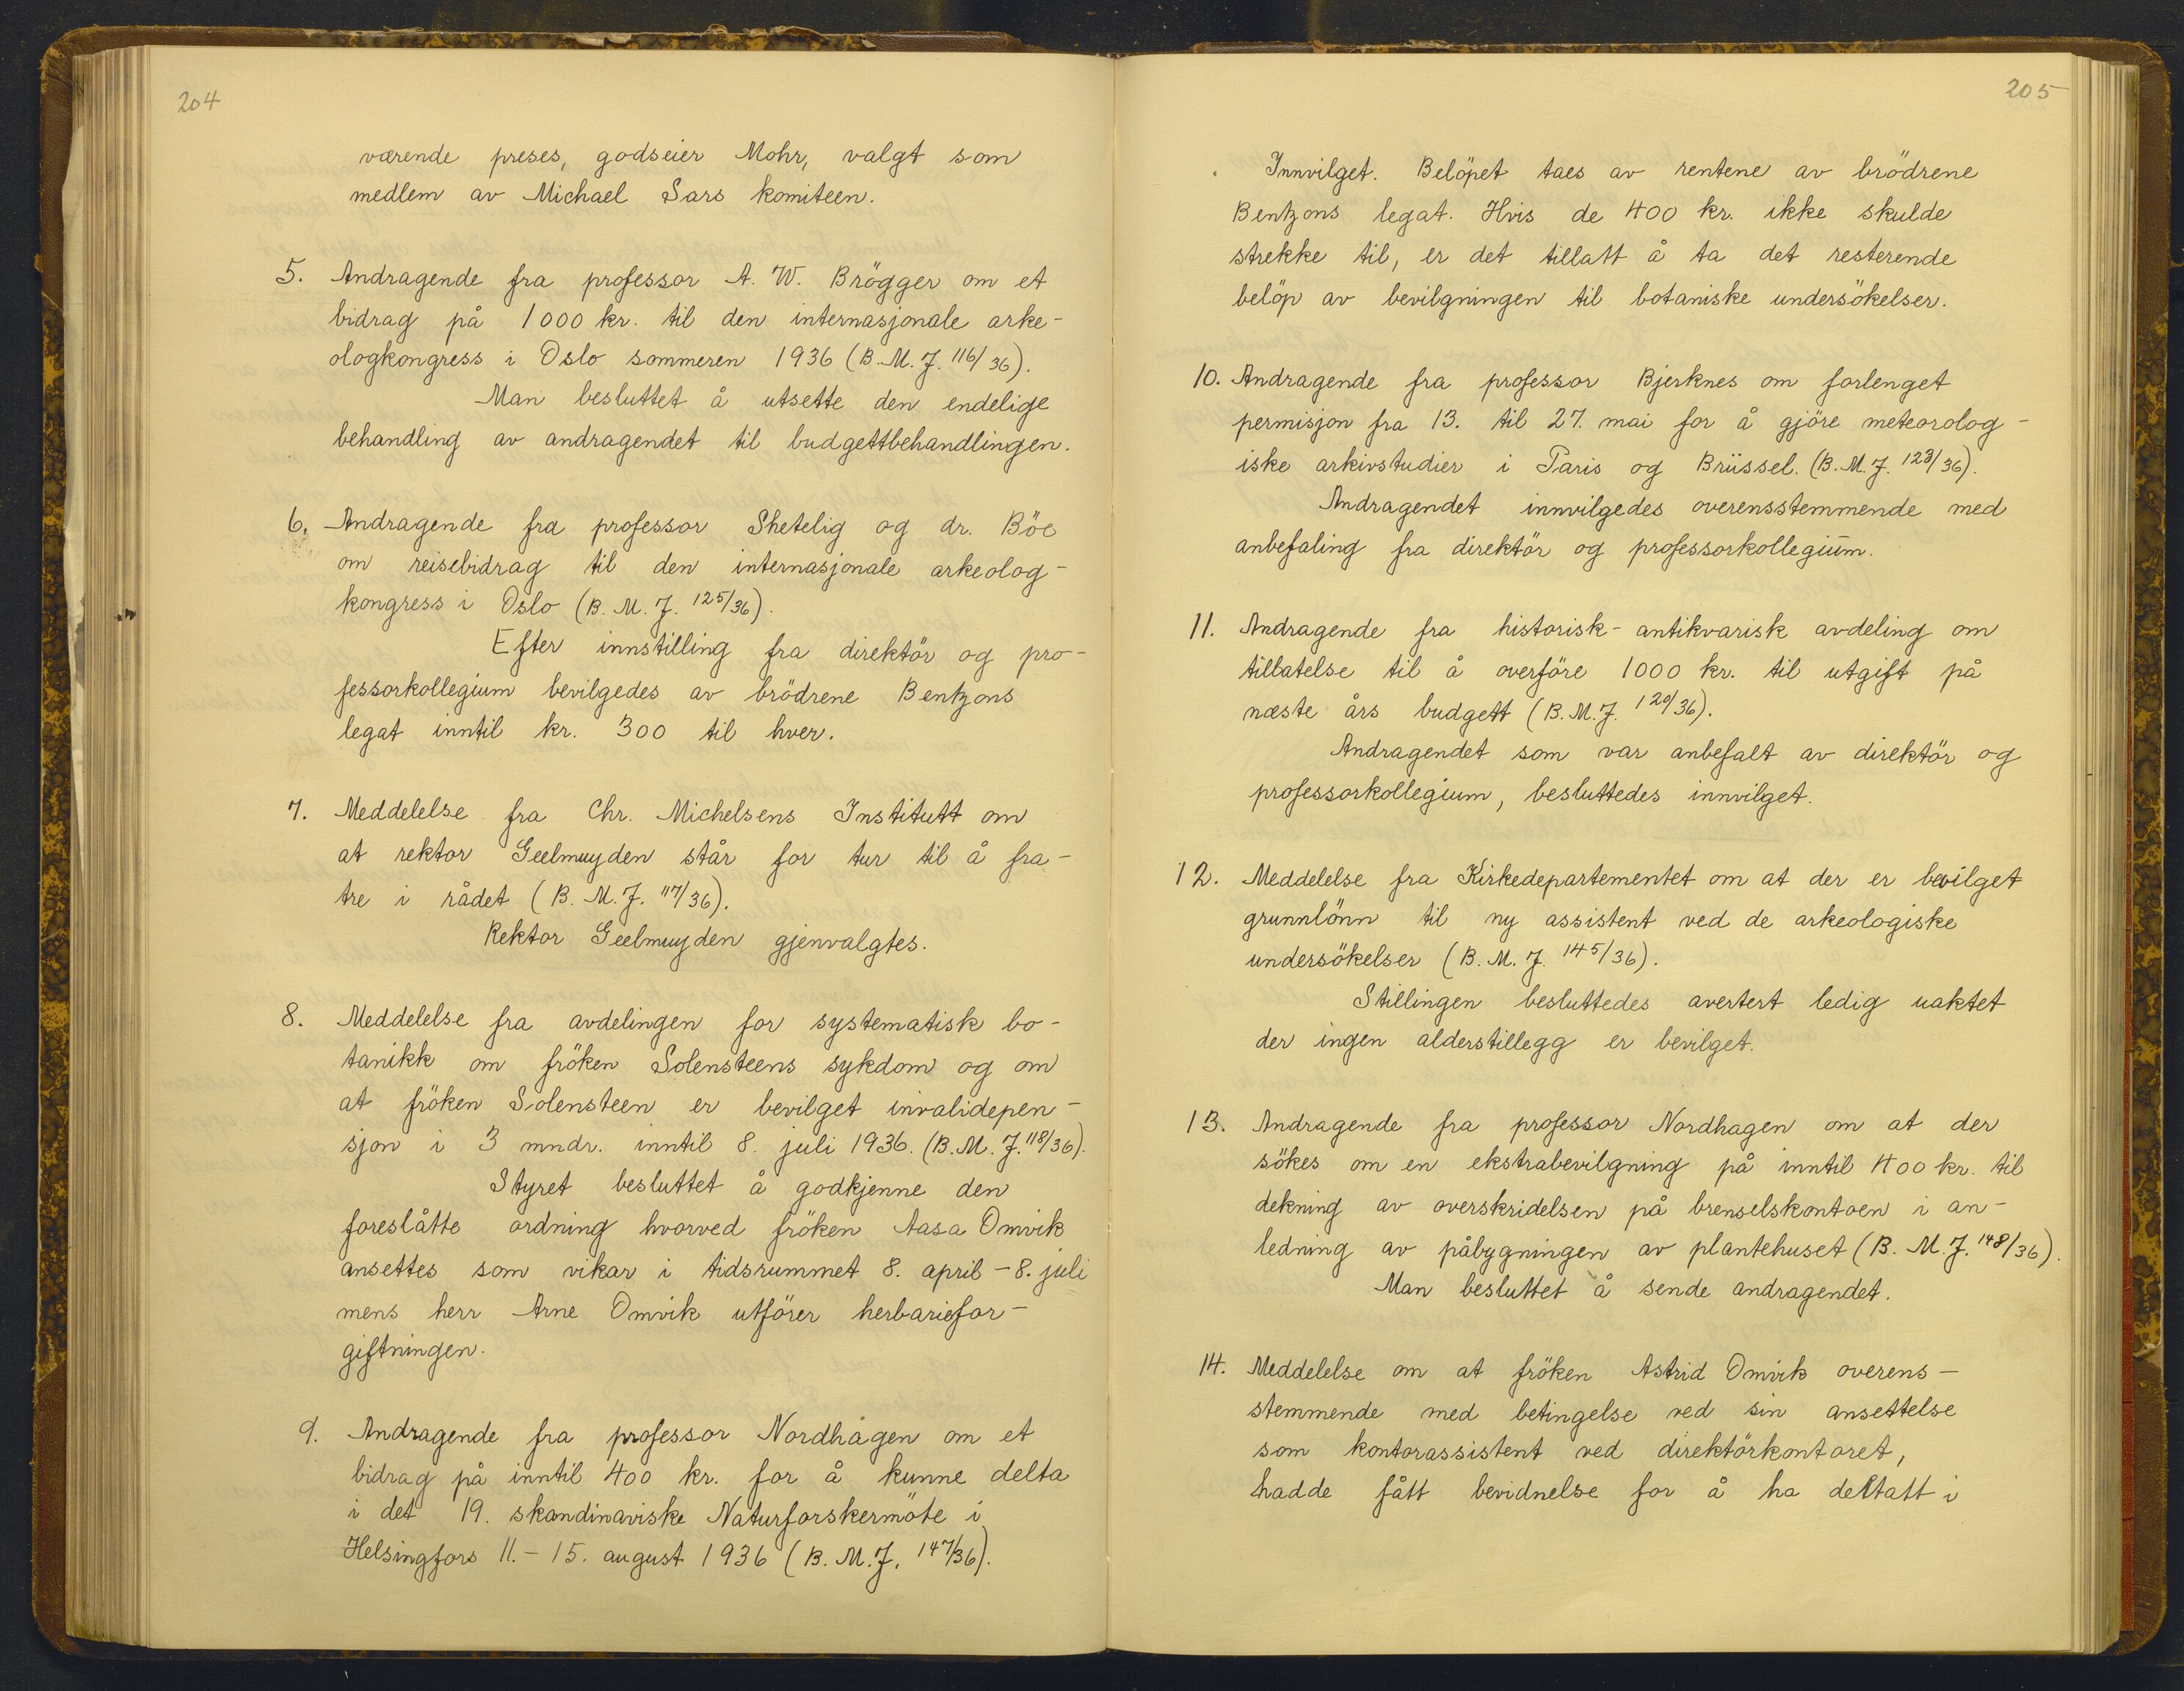 204
værende preses, godseier Mohr, valgt som
medlem av Michael Sars komiteen.
5. Andragende fra professor A. W. Brögger om et
bidrag på 1000 kr. til den internasjonale arke-
ologkongress i Oslo sommeren 1936 (B. M. J. 116/36).
Man besluttet å utsette den endelige
behandling av andragendet til budgettbehandlingen.
6. Andragende fra professor Shetelig og dr. Böe
om reisebidrag til den internasjonale arkeolog-
kongress i Oslo (B. M. J. 125/36).
Efter innstilling fra direktör og pro-
fessorkollegium bevilgedes av brödrene Bentzons
legat inntil kr. 300 til hver.
7. Meddelelse fra Chr. Michelsens Institutt om
at rektor Geelmuyden står for tur til å fra-
tre i rådet (B. M. J. 117/36).
Rektor Geelmuyden gjenvalgtes.
8. Meddelelse fra avdelingen for systematisk bo-
tanikk om fröken Solensteens sykdom og om
at fröken Solensteen er bevilget invalidepen-
sjon i 3 mndr. inntil 8. juli 1936. (B. M. J. 118/36).
Styret besluttet å godkjenne den
foreslåtte ordning hvorved fröken Aasa Omvik
ansettes som vikar i tidsrummet 8. april - 8. juli
mens herr Arne Omvik utförer herbariefor-
giftningen.
9. Andragende fra professor Nordhagen om et
bidrag på inntil 400 kr. for å kunne delta
i det 19. skandinaviske Naturforskermöte i
Helsingfors 11. - 15. august 1936 (B. M. J. 147/36).
205
Innvilget. Belöpet taes av rentene av brödrene
Bentzons legat. Hvis de 400 kr. ikke skulde
strekke til, er det tillatt å ta det resterende
belöp av bevilgningen til botaniske undersökelser.
10. Andragende fra professor Bjerknes om forlenget
permisjon fra 13. til 27. mai for å gjöre meteorolog-
iske arkivstudier i Paris og Brüssel. (B. M. J. 123/36).
Andragendet innvilgedes overensstemmende med
anbefaling fra direktör og professorkollegium.
11. Andragende fra historisk-antikvarisk avdeling om
tillatelse til å overföre 1000 kr. til utgift på
næste års budgett (B. M. J. 120/36).
Andragendet som var anbefalt av direktör og
professorkollegium, besluttedes innvilget.
12. Meddelelse fra Kirkedepartementet om at der er bevilget
grunnlönn til ny assistent ved de arkeologiske
undersökelser (B. M. J. 145/36).
Stillingen besluttedes avertert ledig uaktet
der ingen alderstillegg er bevilget.
13. Andragende fra professor Nordhagen om at der
sökes om en ekstrabevilgning på inntil 400 kr. til
dekning av overskridelsen på brenselskontoen i an-
ledning av påbygningen av plantehuset (B. M. J. 148/36).
Man besluttet å sende andragendet.
14. Meddelelse om at fröken Astrid Omvik overens-
stemmende med betingelse ved sin ansettelse
som kontorassistent ved direktörkontoret,
hadde fått bevidnelse for å ha deltatt i